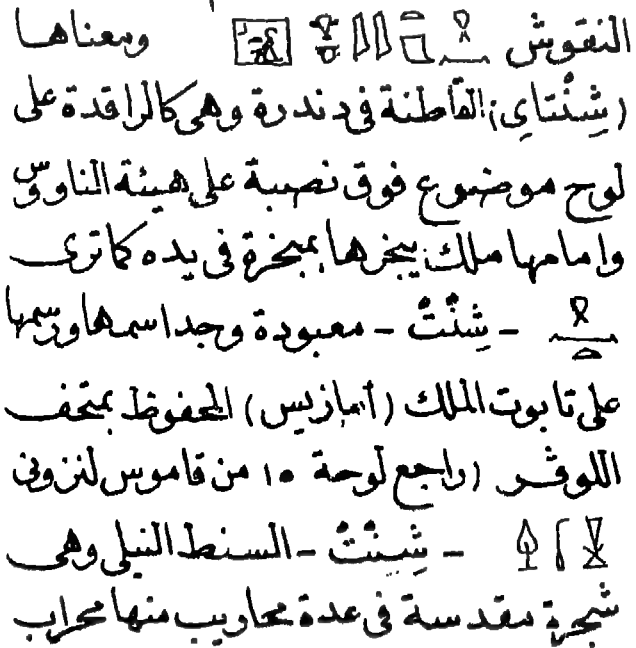 النقوش ومعناها
(شِنْتاىِ) القاطنة فى دندرة وهى كالراقدة على
لوح موضوع فوق نصبة على هيئة الناووس
وامامها ملك يبخرها بمبخرة فى يده كما ترى
- شِنْتْ - معبودة وجد اسمها ورسمها
على تابوت الملك (أمازيس) المحفوظ بمتحف
اللوڤر (راجع لوحة ١٥ من قاموس لنزونى
- شِنْتْ - السنط النيلى وهى
شجرة مقدسة فى عدة محاريب منها محراب